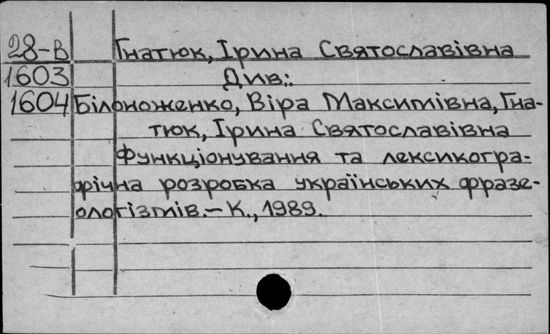 28-В Гнатюк, Ірина Святославівна
1603 Див.:
1604 Білоноженко, Віра Максимівна, Гна-
тюк, Ірина Святославівна
Функціонування та лексикогра-
фічна розробка українських фразе-
ологізмів. – К., 1989.